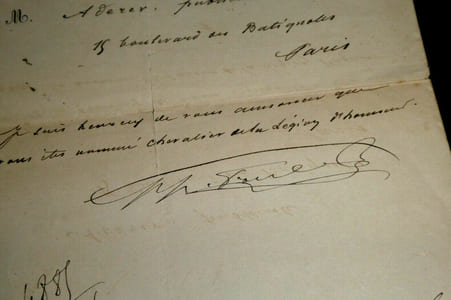 M. Aderer, publi
15 boulevard des Batignolles
Paris
Je suis heureux de vous annoncer que
vous êtes nommé chevalier de la Légion d'honneur.
1885